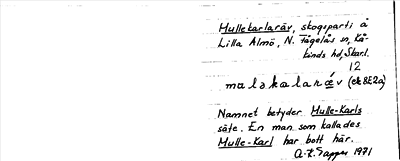 Mullekarlaräv, skogsparti å
Lilla Almö, N. Fågelås sn, Kå-
kinds hd, Skarl.
12
maləkalaræv
Namnet betyder Mulle-Karls
säte. En man som kallades
Mulle-Karl har bott här.
1971